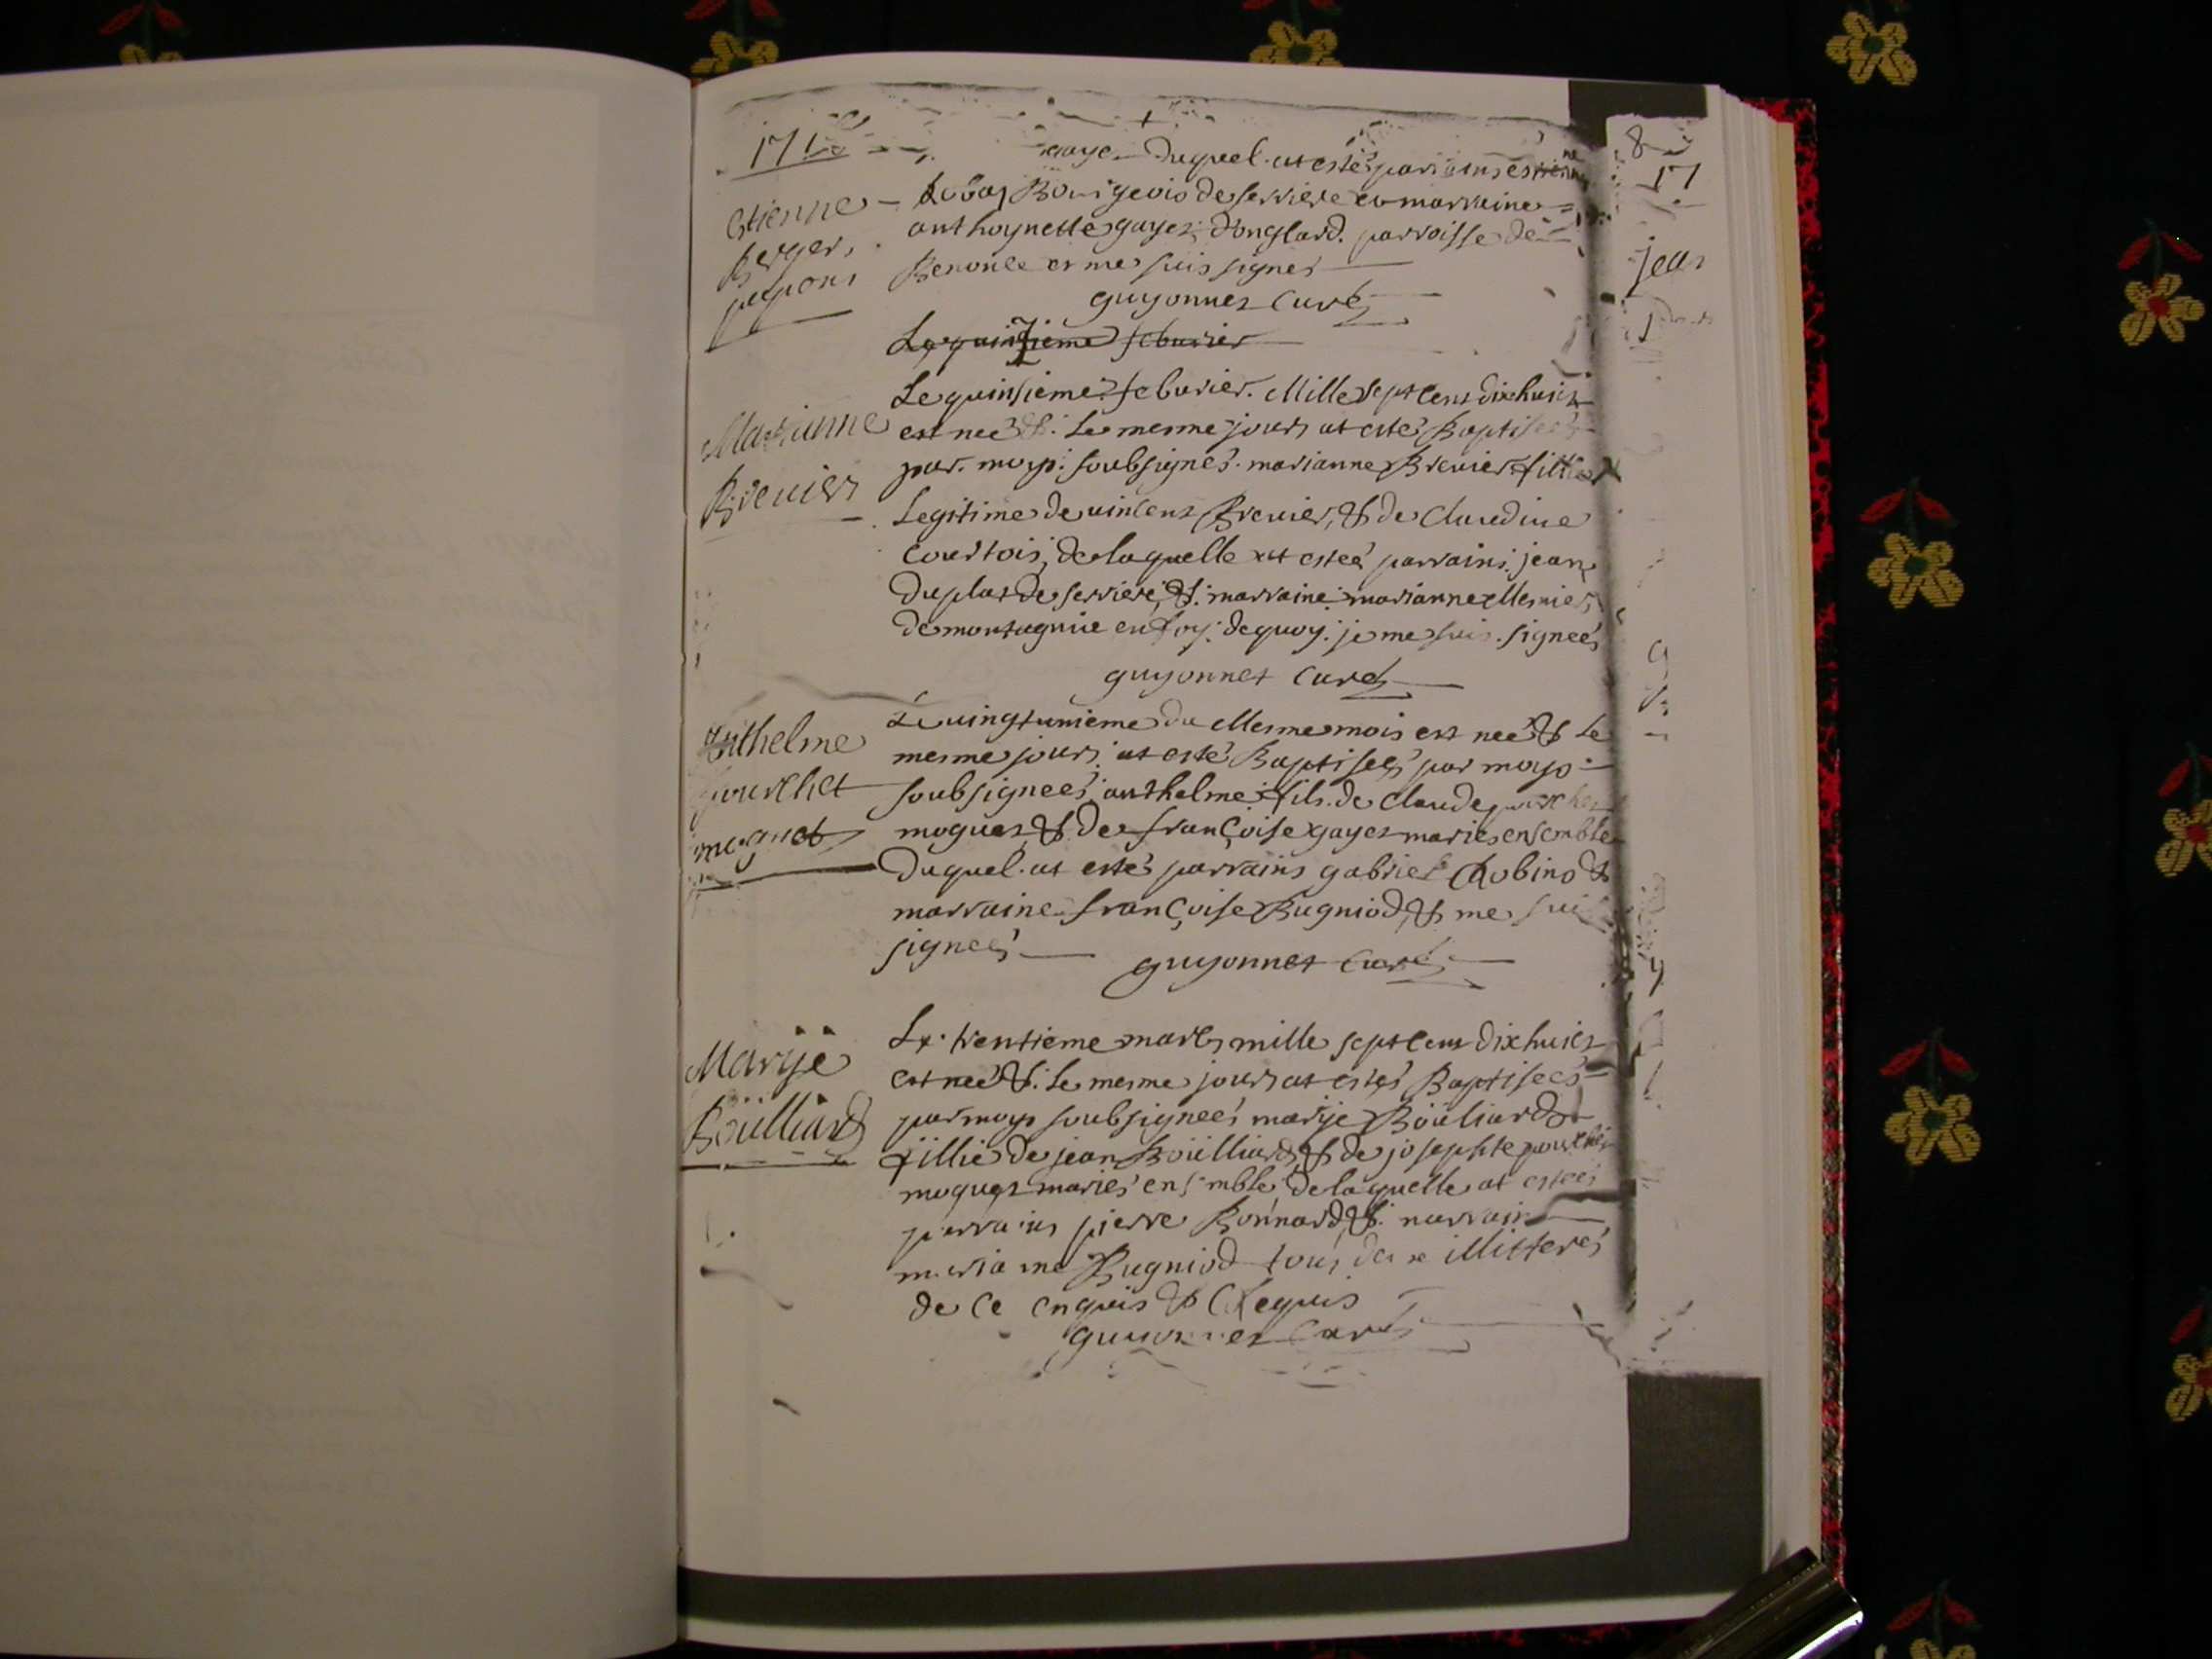 171
gaye Duquel at esté parrain estienne
Etienne
Berger
papons
Bourgeois de serriere et marraine
anthoynette gayet d'onglard. parroisse de
Benonce et me suis signes
guyonnet Curé
Le quinzieme feburier
Marianne
Brevier
Le quinsieme feburier. Mille sept cens dixhuict
est neé &. Le mesme jours at esté Baptiseés
par. moy soubsignés. marianne Brevier fillie
Legitime de vincent Brevier, & de Claudine
Courtois, de laquelle at esteé parrains. jean
Duplat de serriere, &. marraine marianne Mesnier
de montagnie en foy. de quoy. je me suis. signeés
guyonnet Curé
Anthelme
pourchet
moguet
Le vingtunieme du Mesme mois est neé & Le
mesme jours at esté Baptiseés par moy
soubsigneés anthelme fils. de Claude pourchet
moguet & de françoise gayet mariés ensemble
Duquel. at estés parrains gabriel Robin &
marraine françoise Bugniod, & me suis
signeés
guyonnet Curé
Marije
Boüilliard
Le trentieme mars mille sept cens dixhuict
est neé &. Le mesme jours at estés Baptiseés
par moy soubsigneés marije Boüliard
fillie de jean Boüilliard, & de josephte pourchet
moguet mariés ensemble, de laquelle at esteés
parrains pierre Bonnard, &. marraine
marianne Bugniod tous deux illitterés
de Ce enquis & Requis
guyonnet Curé
8
17
jean